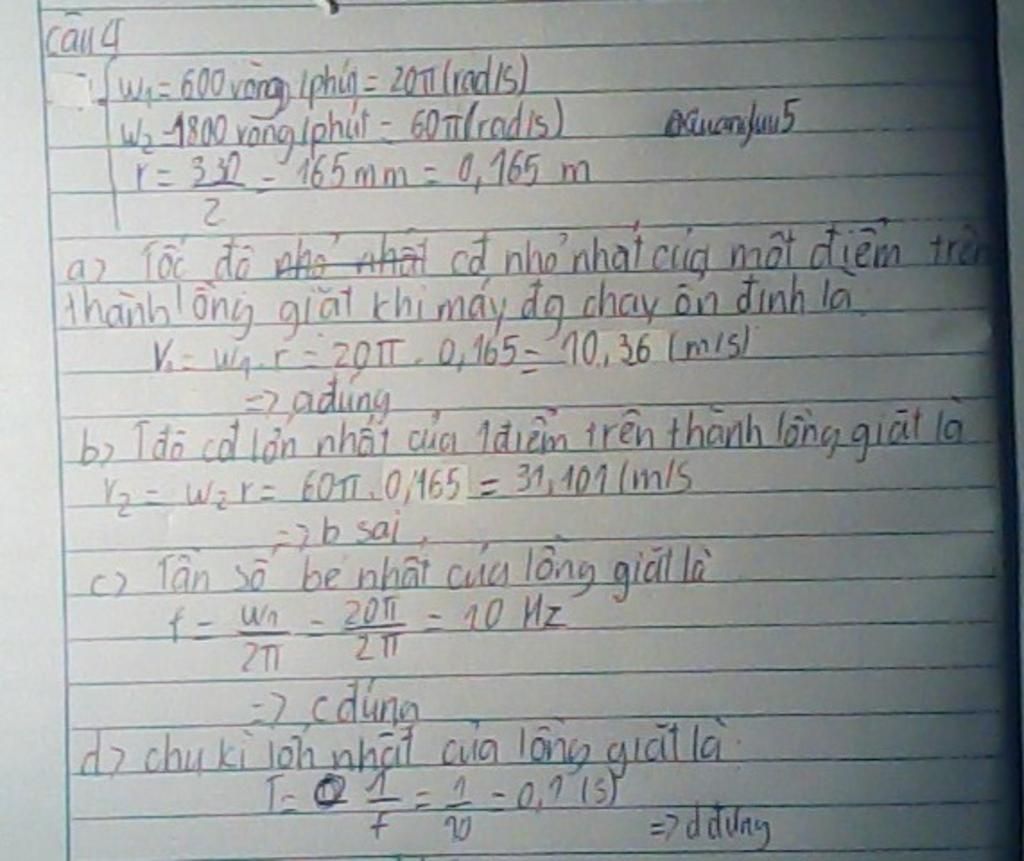 Câu 4
w₁ = 600 vòng/phút = 20π (rad/s)
w₂ = 1800 vòng/phút = 60π (rad/s)
r = 330/2 = 165mm = 0,165 m
a) Tốc độ nhỏ nhất cđ nhỏ nhất của một điểm trên
thành lồng giặt khi máy đg chạy ổn định là
V₁ = w₁.r = 20π . 0,165 = 10,36 (m/s)
=> a đúng
b) Tđộ cđ lớn nhất của 1 điểm trên thành lồng giặt là
V₂ = w₂ r = 60π . 0,165 = 31,101 (m/s
=> b sai
c) Tần số bé nhất của lồng giặt là
f = w₁/2π = 20π/2π = 10 Hz
=> c đúng
d) chu kì lớn nhất của lồng giặt là:
T = 1/f = 1/10 = 0,1 (s)
=> d đúng